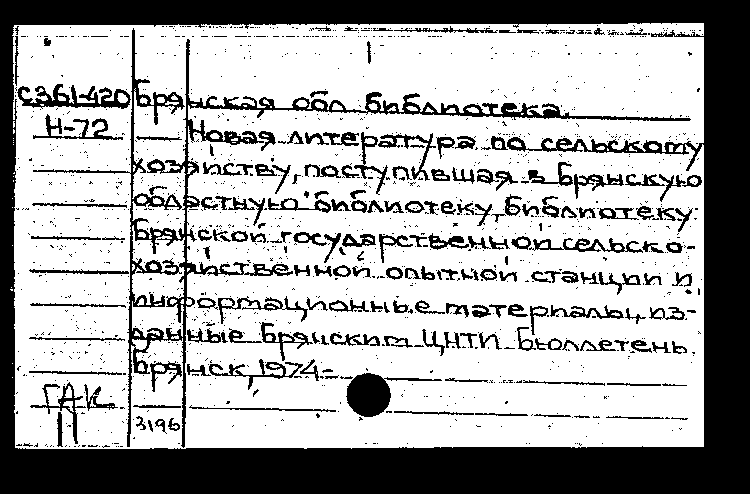 С361-420 Брянская обл. библиотека.
Н-72 Новая литература по сельскому
хозяйству, поступившая в Брянскую
областную библиотеку, библиотеку
Брянской государственной сельско-
хозяйственной опытной станции и
информационные материалы, из-
данные Брянским ЦНТИ. Бюллетень.
Брянск, 1974-
ГАК
3196